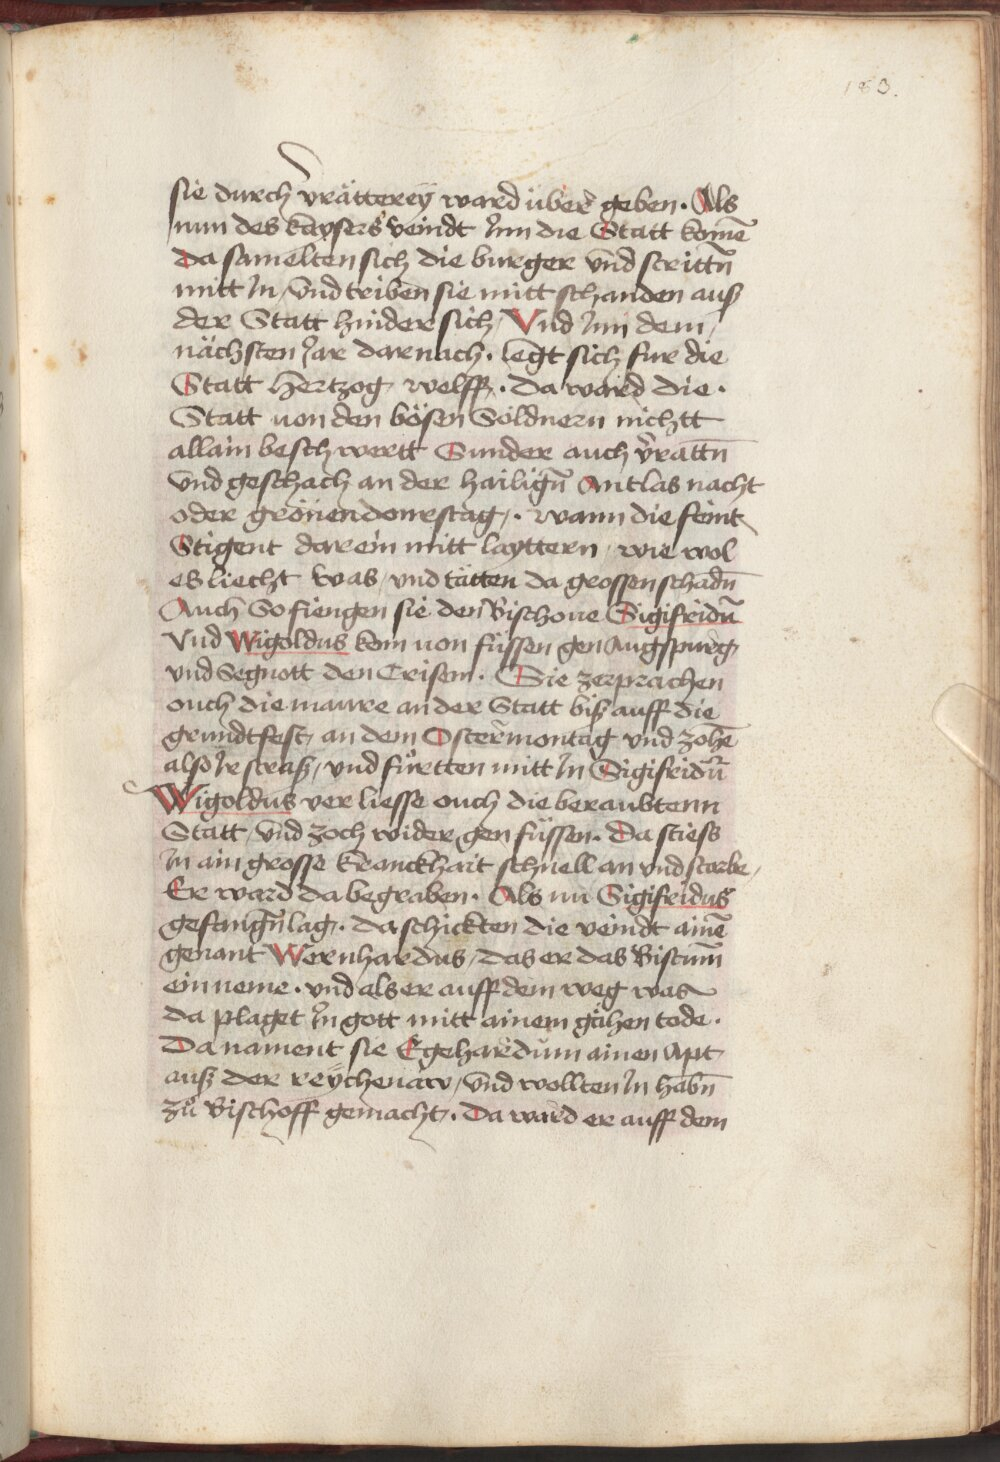 183.
sie durch v̈rätterey ward über̄ geben. Als
nun des kaysers veindt Jnn die Statt komē
Da samelten sich die burger vnd strittn̄
mitt Jn / vnd triben sie mitt schanden auß
der Statt hinder sich / Vnd Jnn dem /
nächsten Jar darnach. legt sich fur die
Statt Hertzog welff. Da ward die.
Statt von den bösen Söldnern nichtt
allain beschwertt Sunder auch v̄rattn̄
vnd geschach an der hailign̄ Antlas nacht
oder grönendonrstag. wann die feint
Stigent darein mitt layttern / wie wol
es liecht was / vnd tätten da grossen schadn̄
Auch So fiengen sie den Bischoue Sigifridū
Vnd Wigoldus kom von füssen gen Augspurg
vnd Segnott den Crisem. Sie zerprachen
ouch die maure an der Statt biß auff die
grundtfest / an dem Ostermontag vnd zohē
also Jr straß / vnd fuͦrtten mitt Jn Sigifridū
Wigoldus ver liesse ouch die beraubtenn
Statt / vnd zoch wider gen füssen. Da stiess
Jn ain grosse kranckhait schnell an vnd starbe /
Er ward da begraben. Als nu Sigifridus
gefangn̄ lag. da schickten die veindt ainē
genant Wernhardus / das er das Bistum̄
ein neme. vnd als er auff dem weg was
da plaget Jn gott mitt ainem gähen tode.
Da nament sie Egehardum ainen Apt
auß der reychenaw / vnd wollten Jn habn̄
zuͦ Bischoff gemacht. Da ward er auff dem